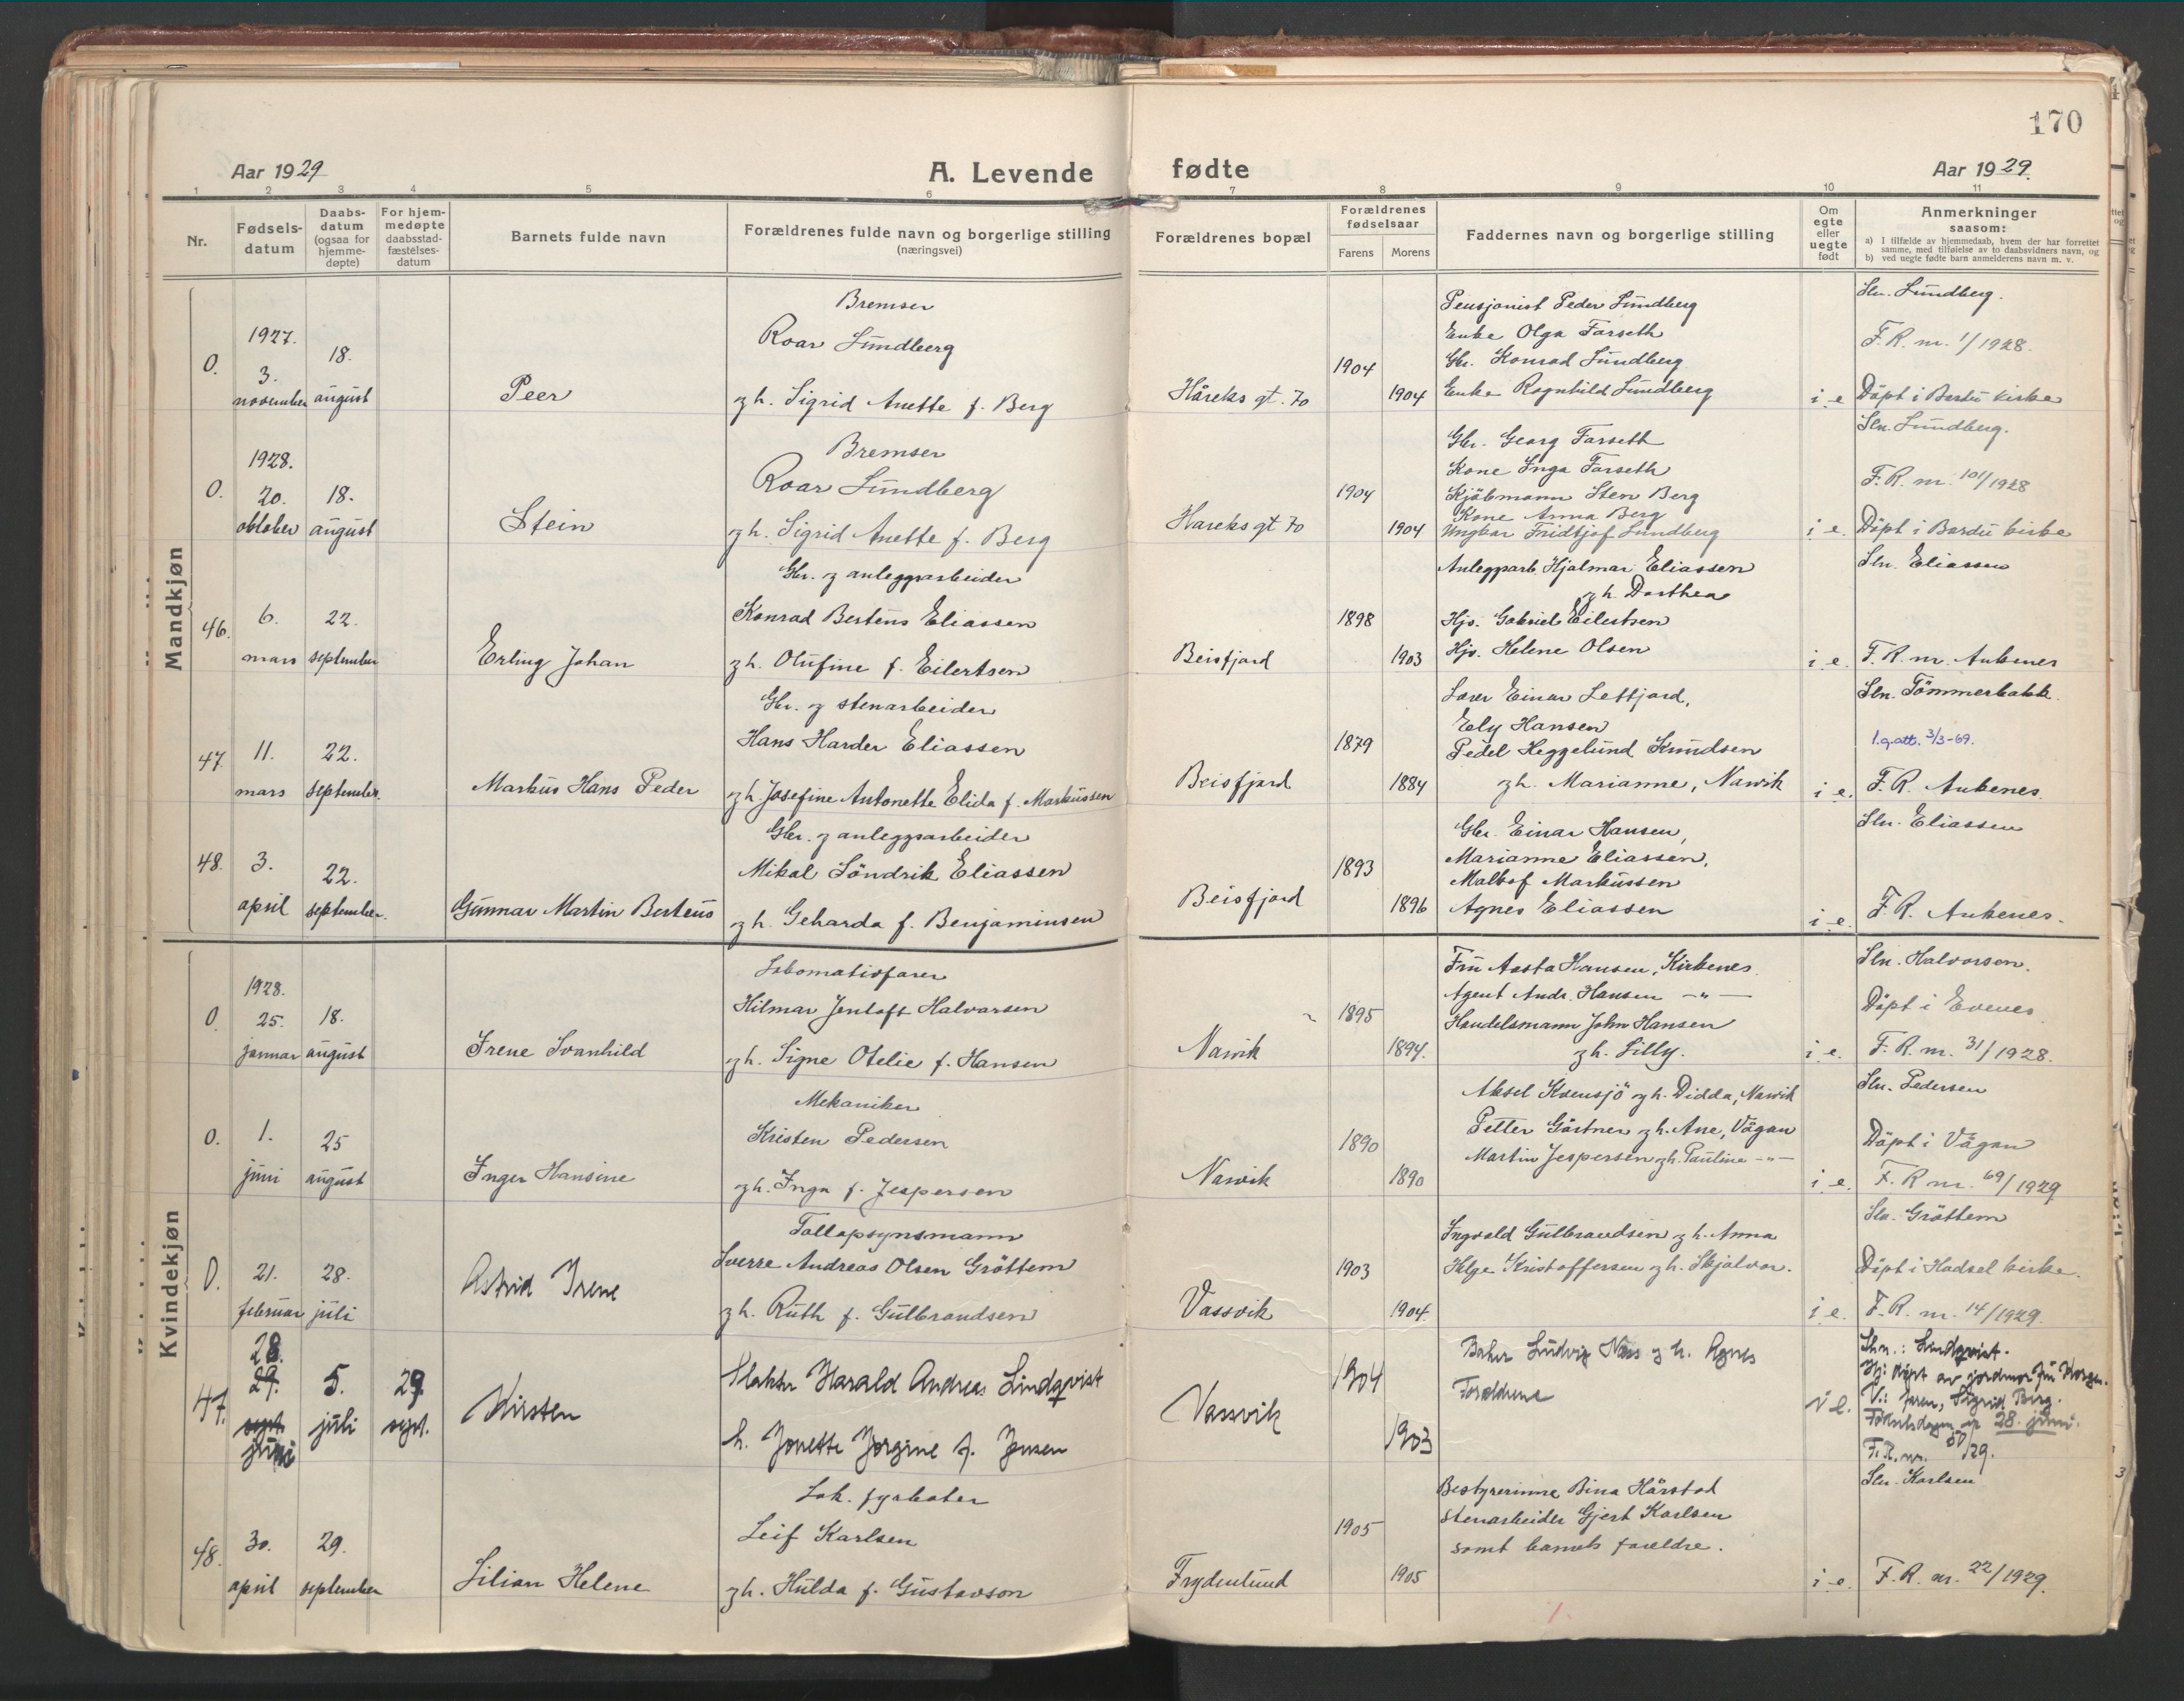 170
Aar 1929
A. Levende fødte
Aar 1929.
1 2 3 4 5 6 7 8 9 10 11
Nr.
Fødsels-datum
Daabs-datum (ogsaa for hjemme-døpte)
For hjem-medøpte daabsstad-fæstelses-datum
Barnets fulde navn
Forældrenes fulde navn og borgerlige stilling
(næringsvei)
Forældrenes bopæl
Forældrenes fødselsaar
Farens
Morens
Faddernes navn og borgerlige stilling
Om egte eller uegte født
Anmerkninger
saasom:
a) I tilfælde av hjemmedaab, hvem der har forrettet
samme, med tilføielse av to daabsvidners navn, og
b) ved uegte fødte barn anmelderens navn m. v.
Mandkjøn
0.
1927.
3.
november
18.
august
Peer
Bremser
Roar Lundberg
og h. Sigrid Anette f. Berg
Håreks gt. 70
1904
1904
Pensjonist Peder Lundberg
Enke Olga Farseth
Gbr. Konrad Lundberg
Enke Ragnhild Lundberg
i e
Sln. Lundberg.
F. R. nr. 1/1928.
Döpt i Bardu kirke
0.
1928.
20.
oktober
18.
august
Stein
Bremser
Roar Lundberg
og h. Sigrid Anette f. Berg
Hareks gt 70
1904
1904
Gbr. Georg Farseth
Kone Inga Farseth
Kjöbmann Sten Berg
Kone Anna Berg
Ungkar Fridtjof Lundberg
i e.
Sln. Lundberg.
F. R. nr. 101/1928
Döpt i Bardu kirke
46.
6.
mars
22.
september
Erling Johan
Gbr. og anleggsarbeider
Konrad Berteus Eliassen
og h. Olufine f. Eilertsen
Beisfjord
1898
1903
Anleggsarb. Hjalmar Eliassen
og h. Dorthea
Hjs. Gabriel Eilertsen
Hjs. Helene Olsen
i e.
Sln. Eliassen
F. R. nr. Ankenes
47.
11.
mars
22.
september.
Markus Hans Peder
Gbr. og stenarbeider
Hans Harder Eliassen
og h. Josefine Antonette Elida f. Markussen
Beisfjord
1879
1884
Lærer Einar Letfjord,
Ely Hansen
Pedel Heggelund Knudsen
og h. Marianne, Narvik
i e.
Sln. Tömmerbakk.
l.g.att. 3/3-69.
F. R. Ankenes.
48.
3.
april
22.
september.
Gunnar Martin Berteus
Gbr. og anleggsarbeider
Mikal Söndrik Eliassen
og h. Geharda f. Benjaminsen
Beisfjord
1893
1896
Gbr. Einar Hansen,
Marianne Eliassen,
Markussen
Agnes Eliassen
i e.
Sln. Eliassen
F. R. Ankenes.
Kvindekjøn
0.
1928.
25.
januar
18.
august
Irene Svanhild
Lokomotivfører
Hilmar Jentoft Halvorsen
og h. Signe Otelie f. Hansen
Narvik
1895
1894.
Fru Aasta Hansen, Kirkenes.
Agent Andr. Hansen —"—
Handelsmann John Hansen
og h. Lilly.
i e.
Sln. Halvorsen.
Döpt i Evenes
F. R. nr. 31/1928.
0.
1.
juni
25
august
Inger Hansine
Mekaniker
Kristen Pedersen
og h. Inga f. Jespersen
Narvik
1890
1890
Aksel Kvensjö og h. Didda, Narvik
Petter Gärtner og h. Ane, Vågan
Martin Jespersen og h. Pauline —"—
i e.
Sln. Pedersen
Döpt i Vågan
F. R nr. 69/1929
0.
21.
februar
28.
juli
Astrid Irene
Tollopsynsmann
Sverre Andreas Olsen Gröttem
og h. Ruth f. Gulbrandsen
Vassvik
1903
1904.
Ingvald Gulbrandsen og h. Anna
Helge Kristoffersen og h. Skjalvor.
i e.
Sln. Gröttem
Döpt i Hadsel kirke.
F. R. nr. 14/1929.
47.
28.
29.
sept.
juni
5.
juli
29
sept.
Kirsten
Slakter Harald Andreas Lindqvist
h. Jonette Jørgine f. Jensen
Vassvik
1904
1903
Baker Ludvig Næs og h. Agnes
Foreldrene
i e.
Sln.: Lindqvist.
Hj: døpt av jordmor fru Korgen.
V.: faren, Sigrid Berg.
Fødselsdagen er 28. juni.
F. R. nr. 50/29.
48.
30.
april
29.
september
Lilian Helene
Lok. fyrbøter
Leif Karlsen
og h. Hulda f. Gustavson
Frydenlund
1905
1905
Bestyrerinne Bina Hårstad
Stenarbeider Gjert Karlsen
samt barnets foreldre.
i e.
Sln. Karlsen
F. R. nr. 22/1929.